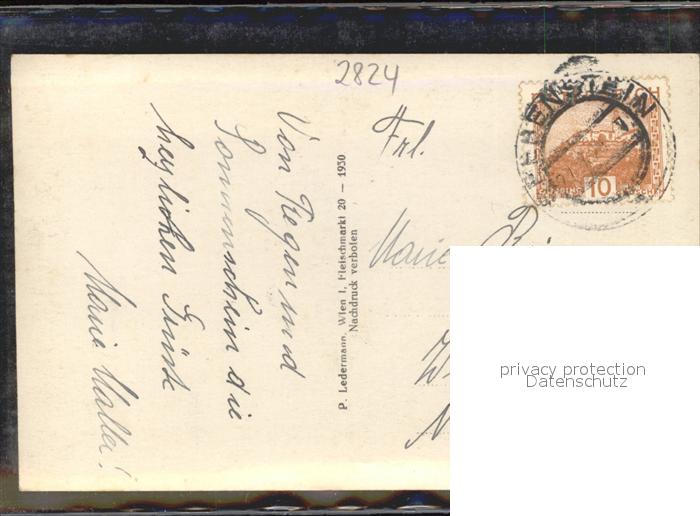 2824
Von Regen und
Sonnenschein die
herzlichen Grüße
Marie Malla!
P. Ledermann, Wien I, Fleischmarkt 20 — 1930
Nachdruck verboten
Frl.
Marie
W
N
10
privacy protection
Datenschutz